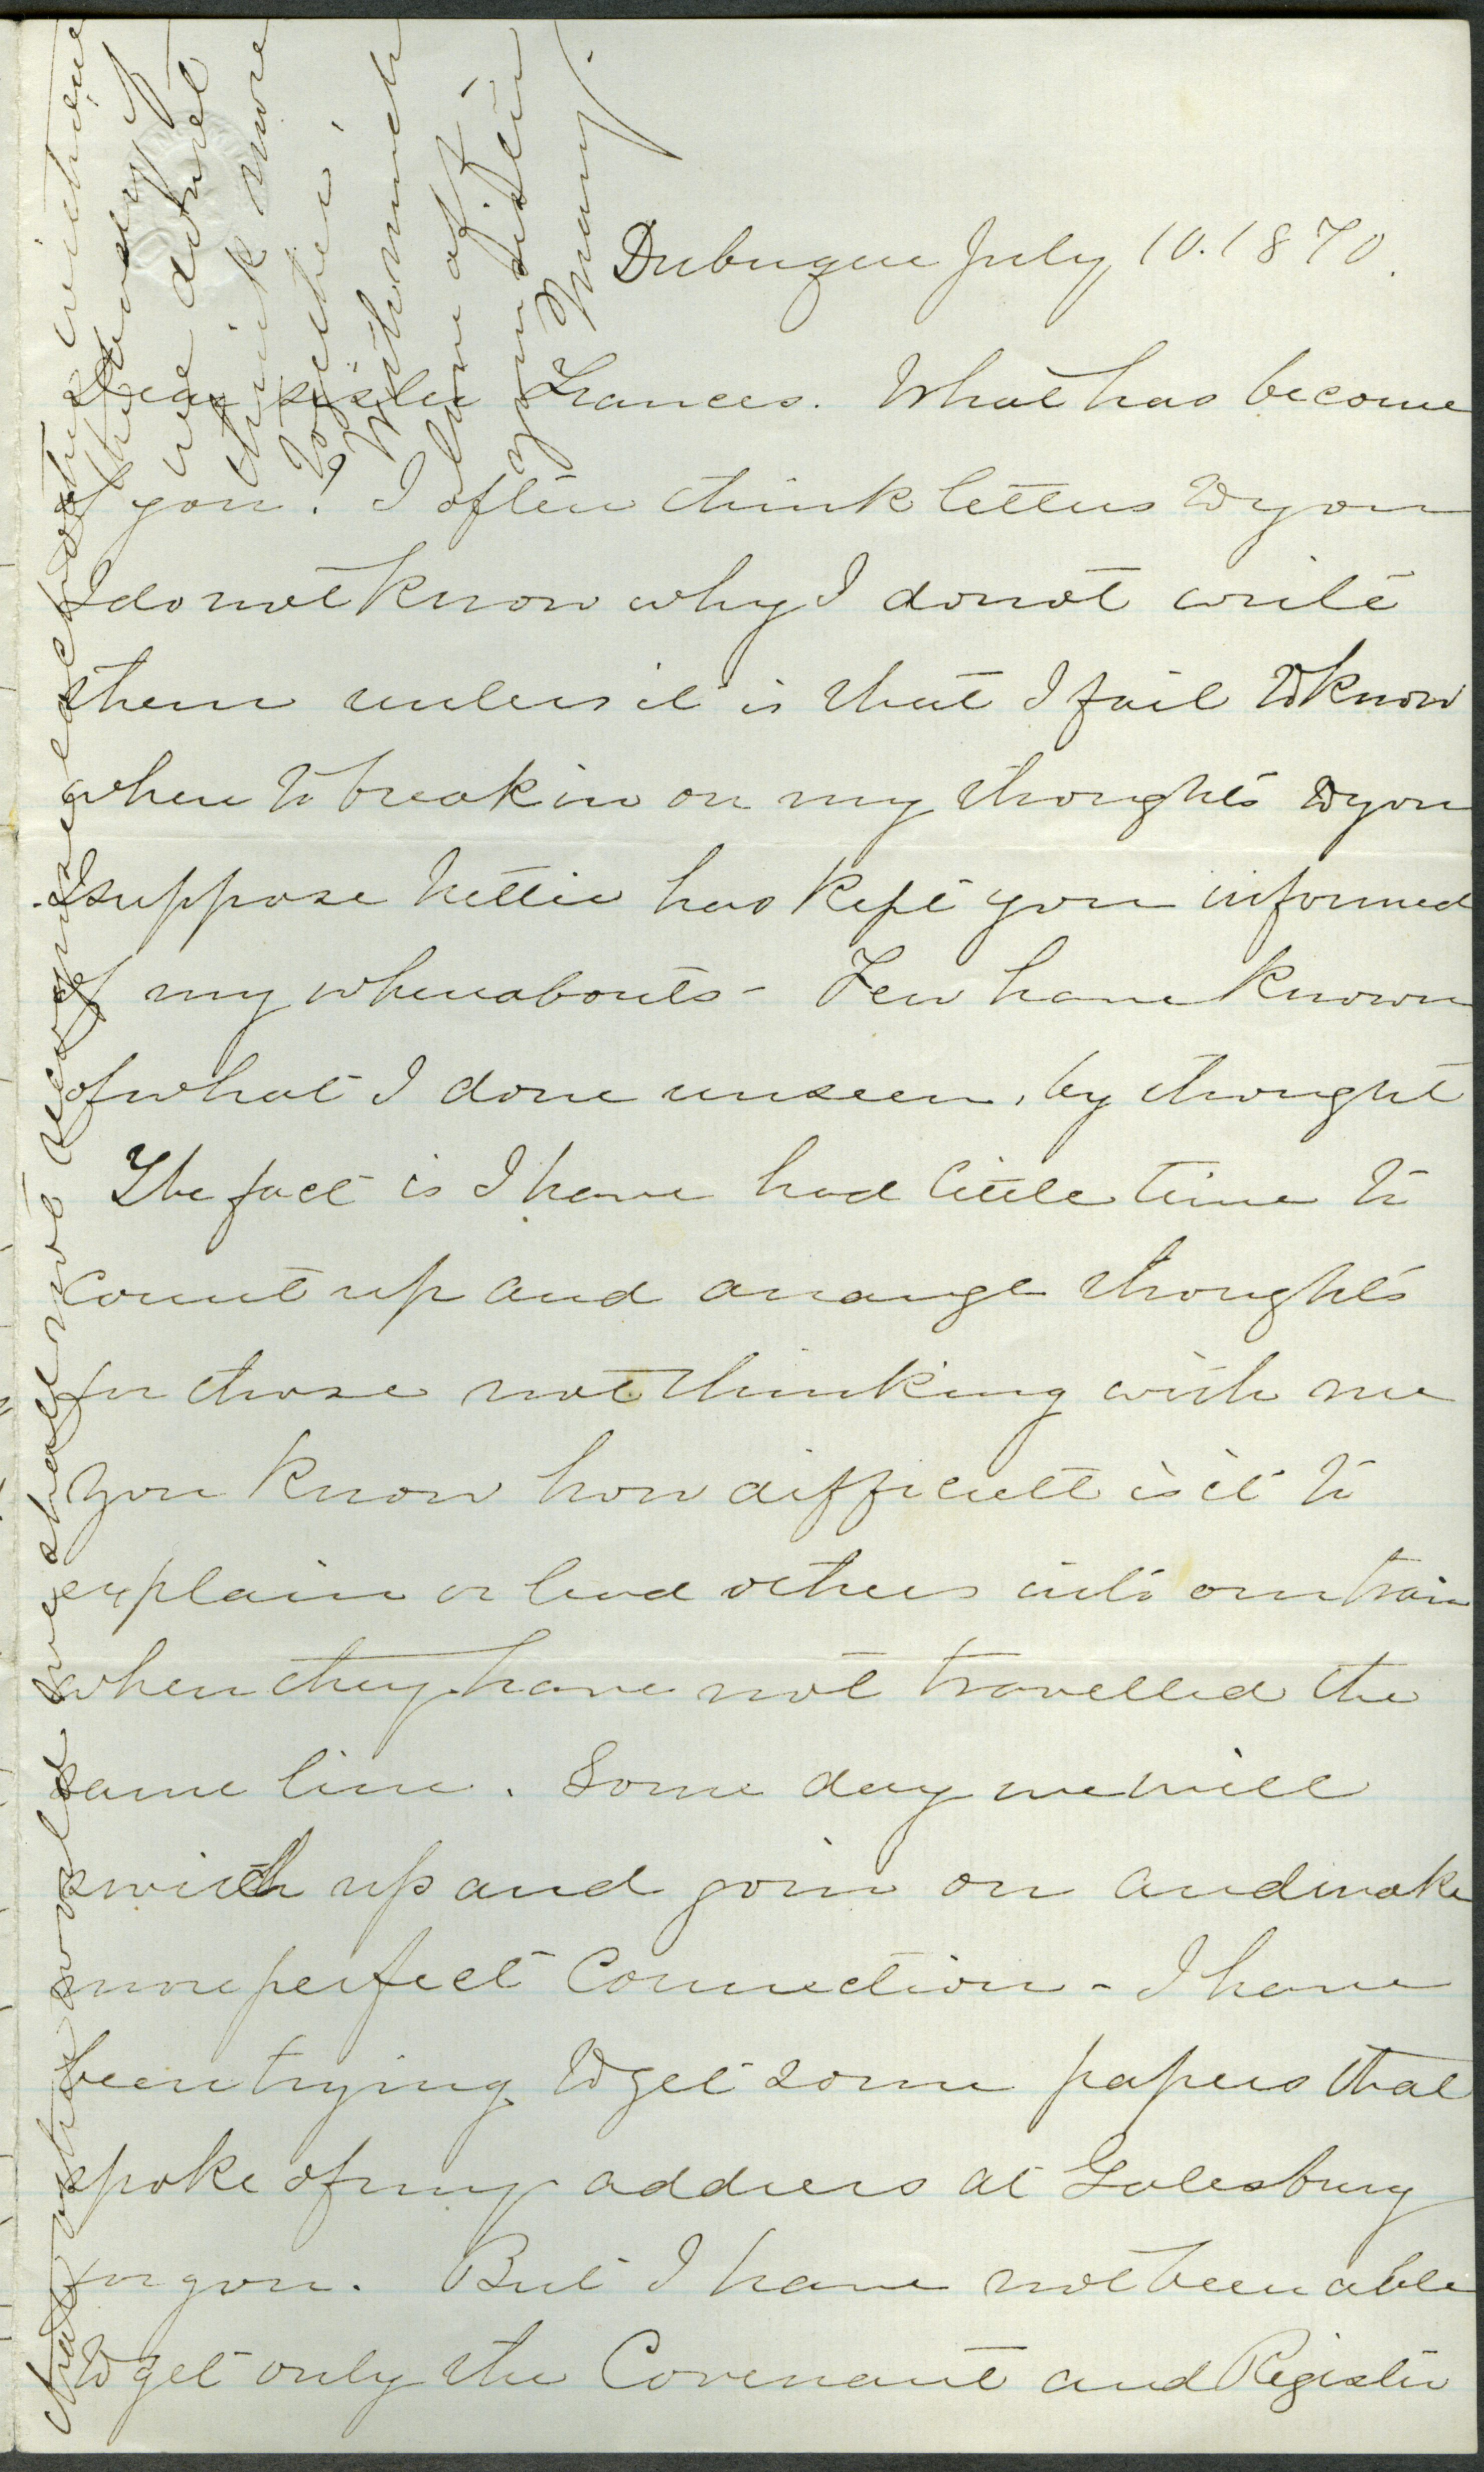 Dubuque July 10. 1870.
Dear sister Frances. What has become
of you? I often think letters to you
I do not know why I do not write
them unless it is that I fail to know
when to break in on my thoughts to you
I suppose Nettie has kept you informed
of my whereabouts - Few have known
of what I done unseen, by thought
The fact is I have had little time to
count up and arrange thoughts
for those not thinking with me
You know how difficult is it to
explain or lead others into our train
when they have not travelled the
same line. Some day we will
switch up and join on and make
more perfect connection - I have
been trying to get some papers that
spoke of my address at Galesburg
for you. But I have not been able
to get only the Covenant and Register
that in the world we shall not recognize each other
the way
we do not
think more
together.
With much
love aft-
your sister
Mary.